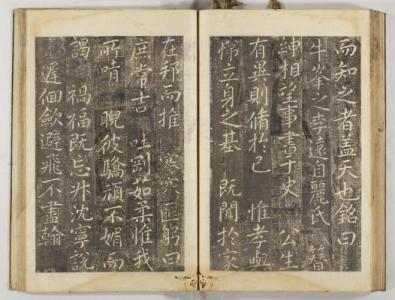 而知之者盖天也銘曰
牛峯之李遠自麗氏 簪
紳相望事書于史 公生
有異則脩於己 惟孝與
悌立身之基 既聞於家
在邦而推 蹇蹇匪躬曰
庶常吉 吐剛茹柔惟我
所 睨彼驕頑不媚而
謁 禍福既忘升沈寧說
遲佪歛避飛不盡翰